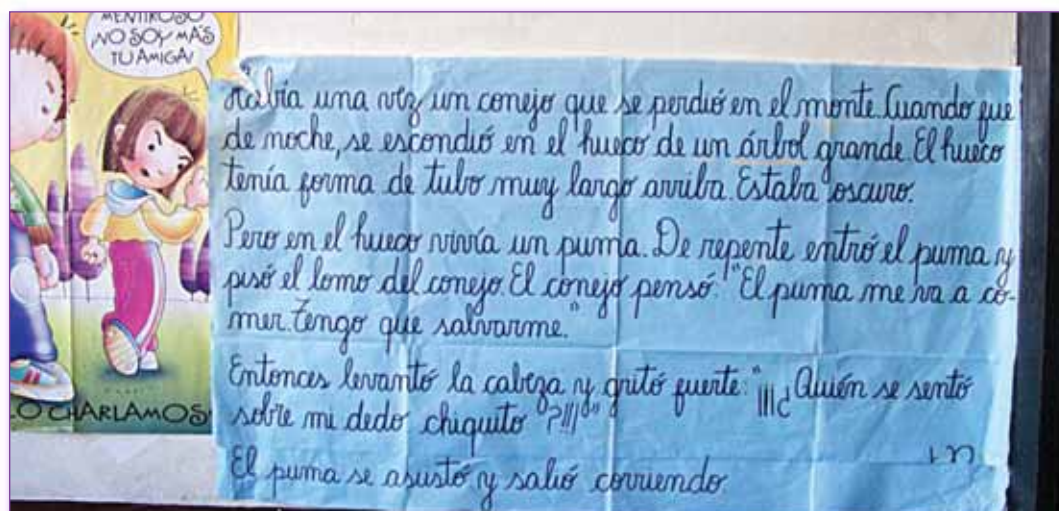 MENTIROSO
¡NO SOY MÁS
TU AMIGA!
Había una véz un conejo que se perdió en el monte. Cuando fue
de noche, se escondió en el hueco de un árbol grande. El hueco
tenía forma de tubo muy largo arriba. Estaba oscuro.
Pero en el hueco vivía un puma. De repente entró el puma y
pisó el lomo del conejo. El conejo pensó: "El puma me va a co-
mer. Tengo que salvarme."
Entonces levantó la cabeza y gritó fuerte: "¡¡¡¿Quién se sentó
sobre mi dedo chiquito?!!!"
El puma se asustó y salió corriendo.
LO CHARLAMOS